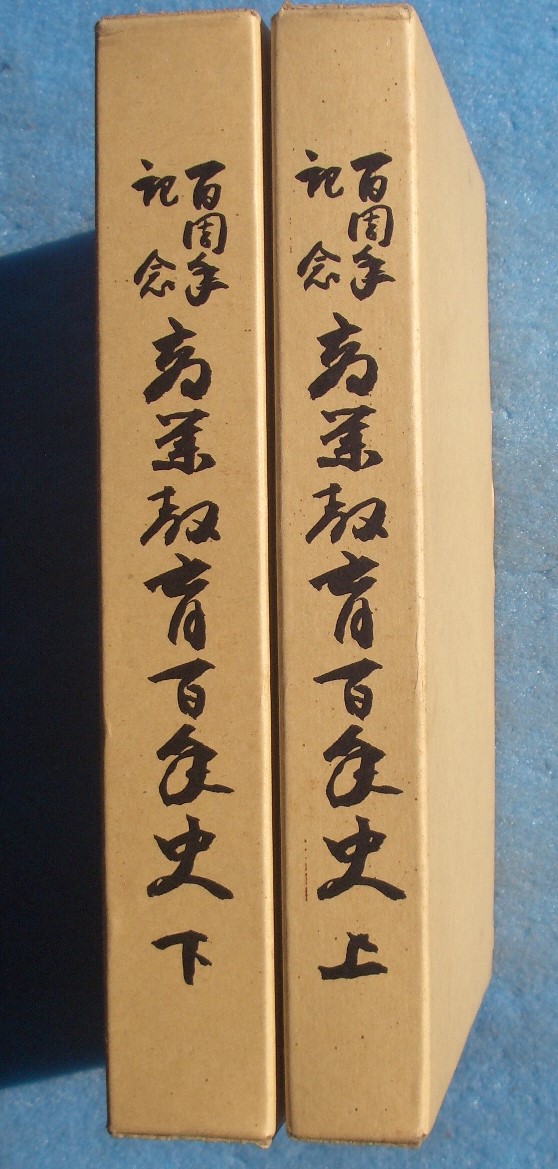 百周年
記念
商業教育百年史 上
百周年
記念
商業教育百年史 下